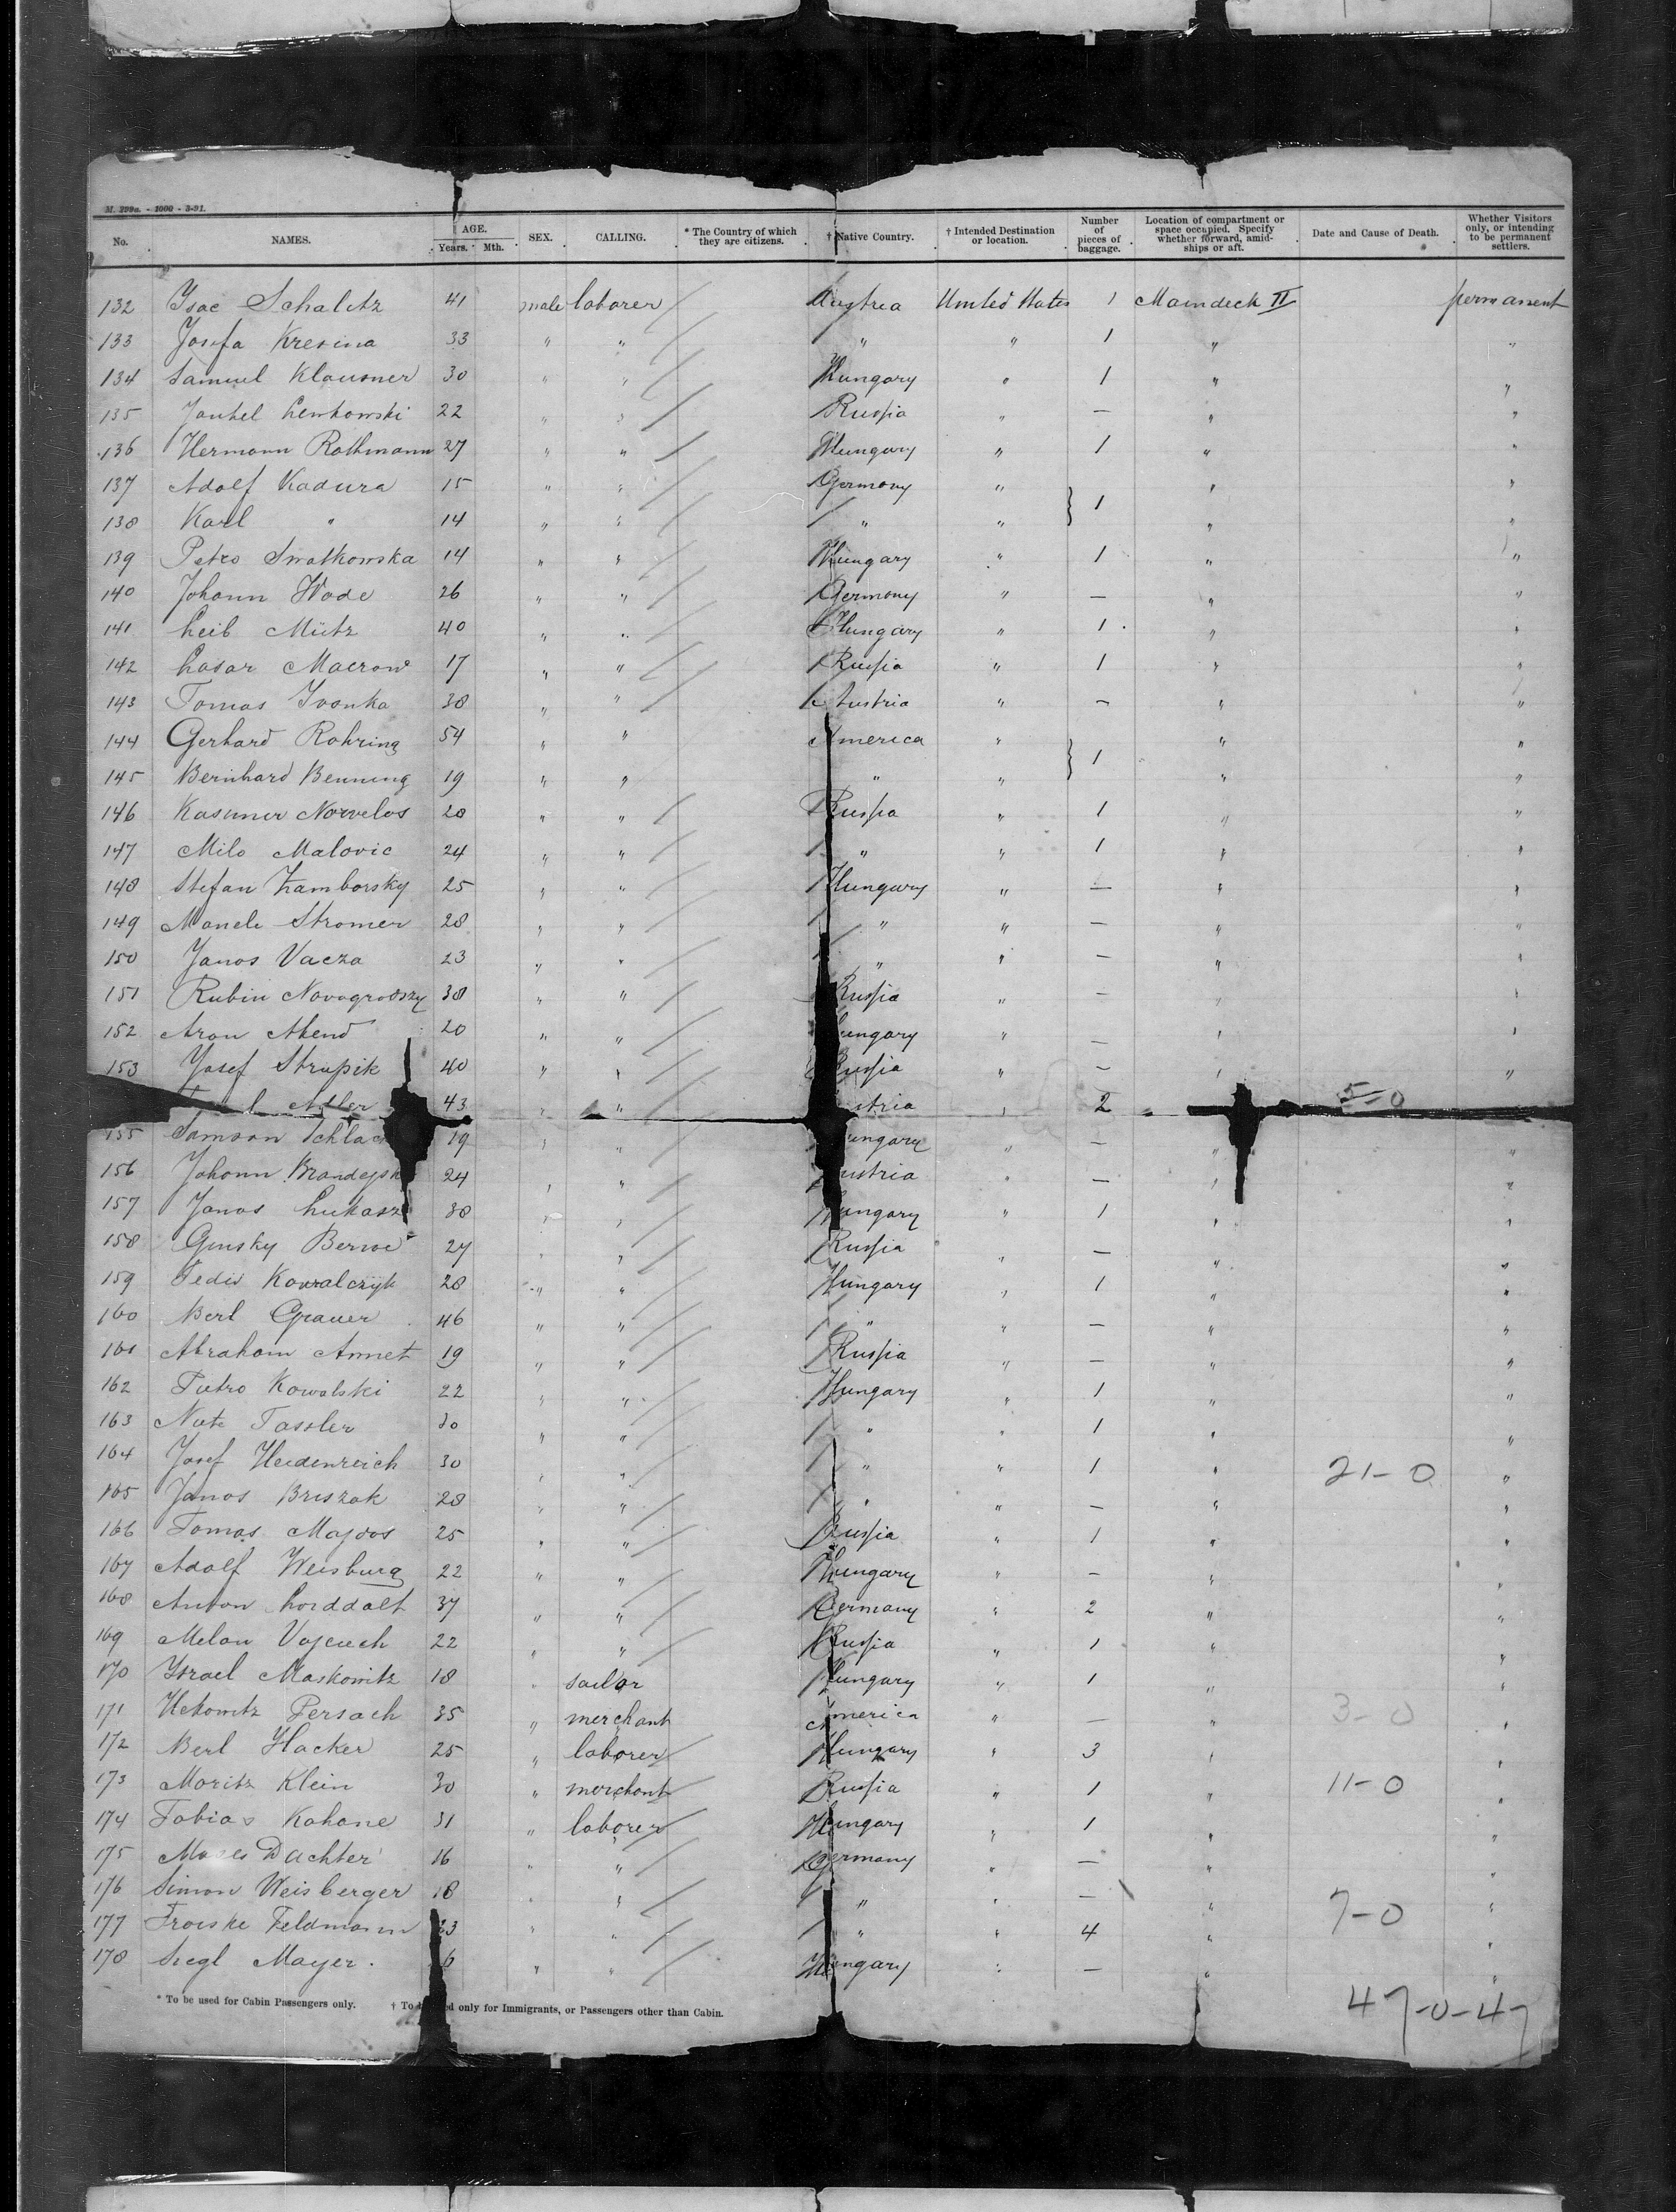 M. 299a. - 1000 - 3-91.
No. NAMES. AGE. Years. Mth. SEX. CALLING. * The Country of which they are citizens. † Native Country. † Intended Destination or location. Number of pieces of baggage. Location of compartment or space occupied. Specify whether forward, amidships or aft. Date and Cause of Death. Whether Visitors only, or intending to be permanent settlers.
132 Isac Schalitz 41 male laborer Austria United States 1 Maindeck II permanent
133 Josefa Kresina 33 " " " " 1 " "
134 Samuel Klausner 30 " " Hungary " 1 " "
135 Jankel Lewkowski 22 " " Russia " — " "
136 Hermann Rothmann 27 " " Hungary " 1 " "
137 Adolf Kadura 15 " " Germany " } 1 " "
138 Karl " 14 " " " " " "
139 Petro Swatkowska 14 " " Hungary " 1 " "
140 Johann Wode 26 " " Germany " — " "
141 Leib Mütz 40 " " Hungary " 1 " "
142 Lasar Macrow 17 " " Russia " 1 " "
143 Tomas Ivonka 38 " " Austria " — " "
144 Gerhard Rohring 54 " " America " } 1 " "
145 Bernhard Benning 19 " " " " " "
146 Kasimer Norvelos 28 " " Russia " 1 " "
147 Milo Malovic 24 " " " " 1 " "
148 Stefan Zamborsky 25 " " Hungary " — " "
149 Manele Stromer 28 " " " " — " "
150 Janos Vacza 23 " " " " — " "
151 Rubin Novogrodszy 38 " " Russia " — " "
152 Aron Abend 20 " " Hungary " — " "
153 Josef Strupik 40 " " Russia " — " "
Adler 43 " " stria " 2 5-0
155 Samson Schlac 19 " " ungary " — " "
156 Johann Brandejs 24 " " ustria " — " "
157 Janos Lukasz 38 " " Hungary " 1 " "
158 Ginsky Berwe 27 " " Russia " — " "
159 Fedis Kowalczyk 28 " " Hungary " 1 " "
160 Berl Grauer 46 " " " " — " "
161 Abraham Annet 19 " " Russia " — " "
162 Pietro Kowalski 22 " " Hungary " 1 " "
163 Nute Tassler 30 " " " " 1 " "
164 Josef Heidenreich 30 " " " " 1 " 21-0 "
165 Janos Briszak 28 " " " " — " "
166 Tomas Majdos 25 " " Russia " 1 " "
167 Adolf Weisburg 22 " " Hungary " — " "
168 Anton Lorddalt 37 " " Germany " 2 " "
169 Melan Vojciech 22 " " Russia " 1 " "
170 Israel Moskowitz 18 " sailor Hungary " 1 " "
171 Hekowitz Persach 35 " merchant America " — " 3-0 "
172 Berl Hacker 25 " laborer Hungary " 3 " "
173 Moritz Klein 30 " merchant Russia " 1 " 11-0 "
174 Tobias Kahane 31 " laborer Hungary " 1 " "
175 Moses Dachter 16 " " Germany " — " "
176 Simon Weisberger 18 " " " " — " "
177 Froiske Feldmann 23 " " " " 4 " 7-0 "
178 Siegl Mayer. 6 " " Hungary " — " "
* To be used for Cabin Passengers only. † To d only for Immigrants, or Passengers other than Cabin.
47-0-47